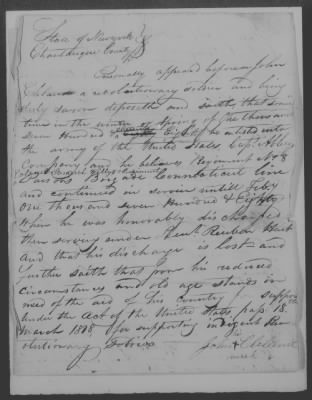 State of Newyork
Chautauque County
Personally appeard before me John
Cleland a revolutionary soldier and being
duly sworn deposeth and saith that some
time in the winter or Spring of one thousand
seven Hundred & Eight he enlisted into
the army of the United States Capt Abbey
Company and he believes Regiment No 8
Brigade Connecticut line
and continued in service untill Feby
One thousand seven Hundred & Eighty
When he was honorably discharged
then serving under Lieut Reuben
And that his discharge is lost and
further saith that from his reduced
circumstances and old age stands in
need of the aid of his country support
under the Act of the United States pass 18
March 1818 for supporting indigent Rev
olutionary
John Cleland
mark